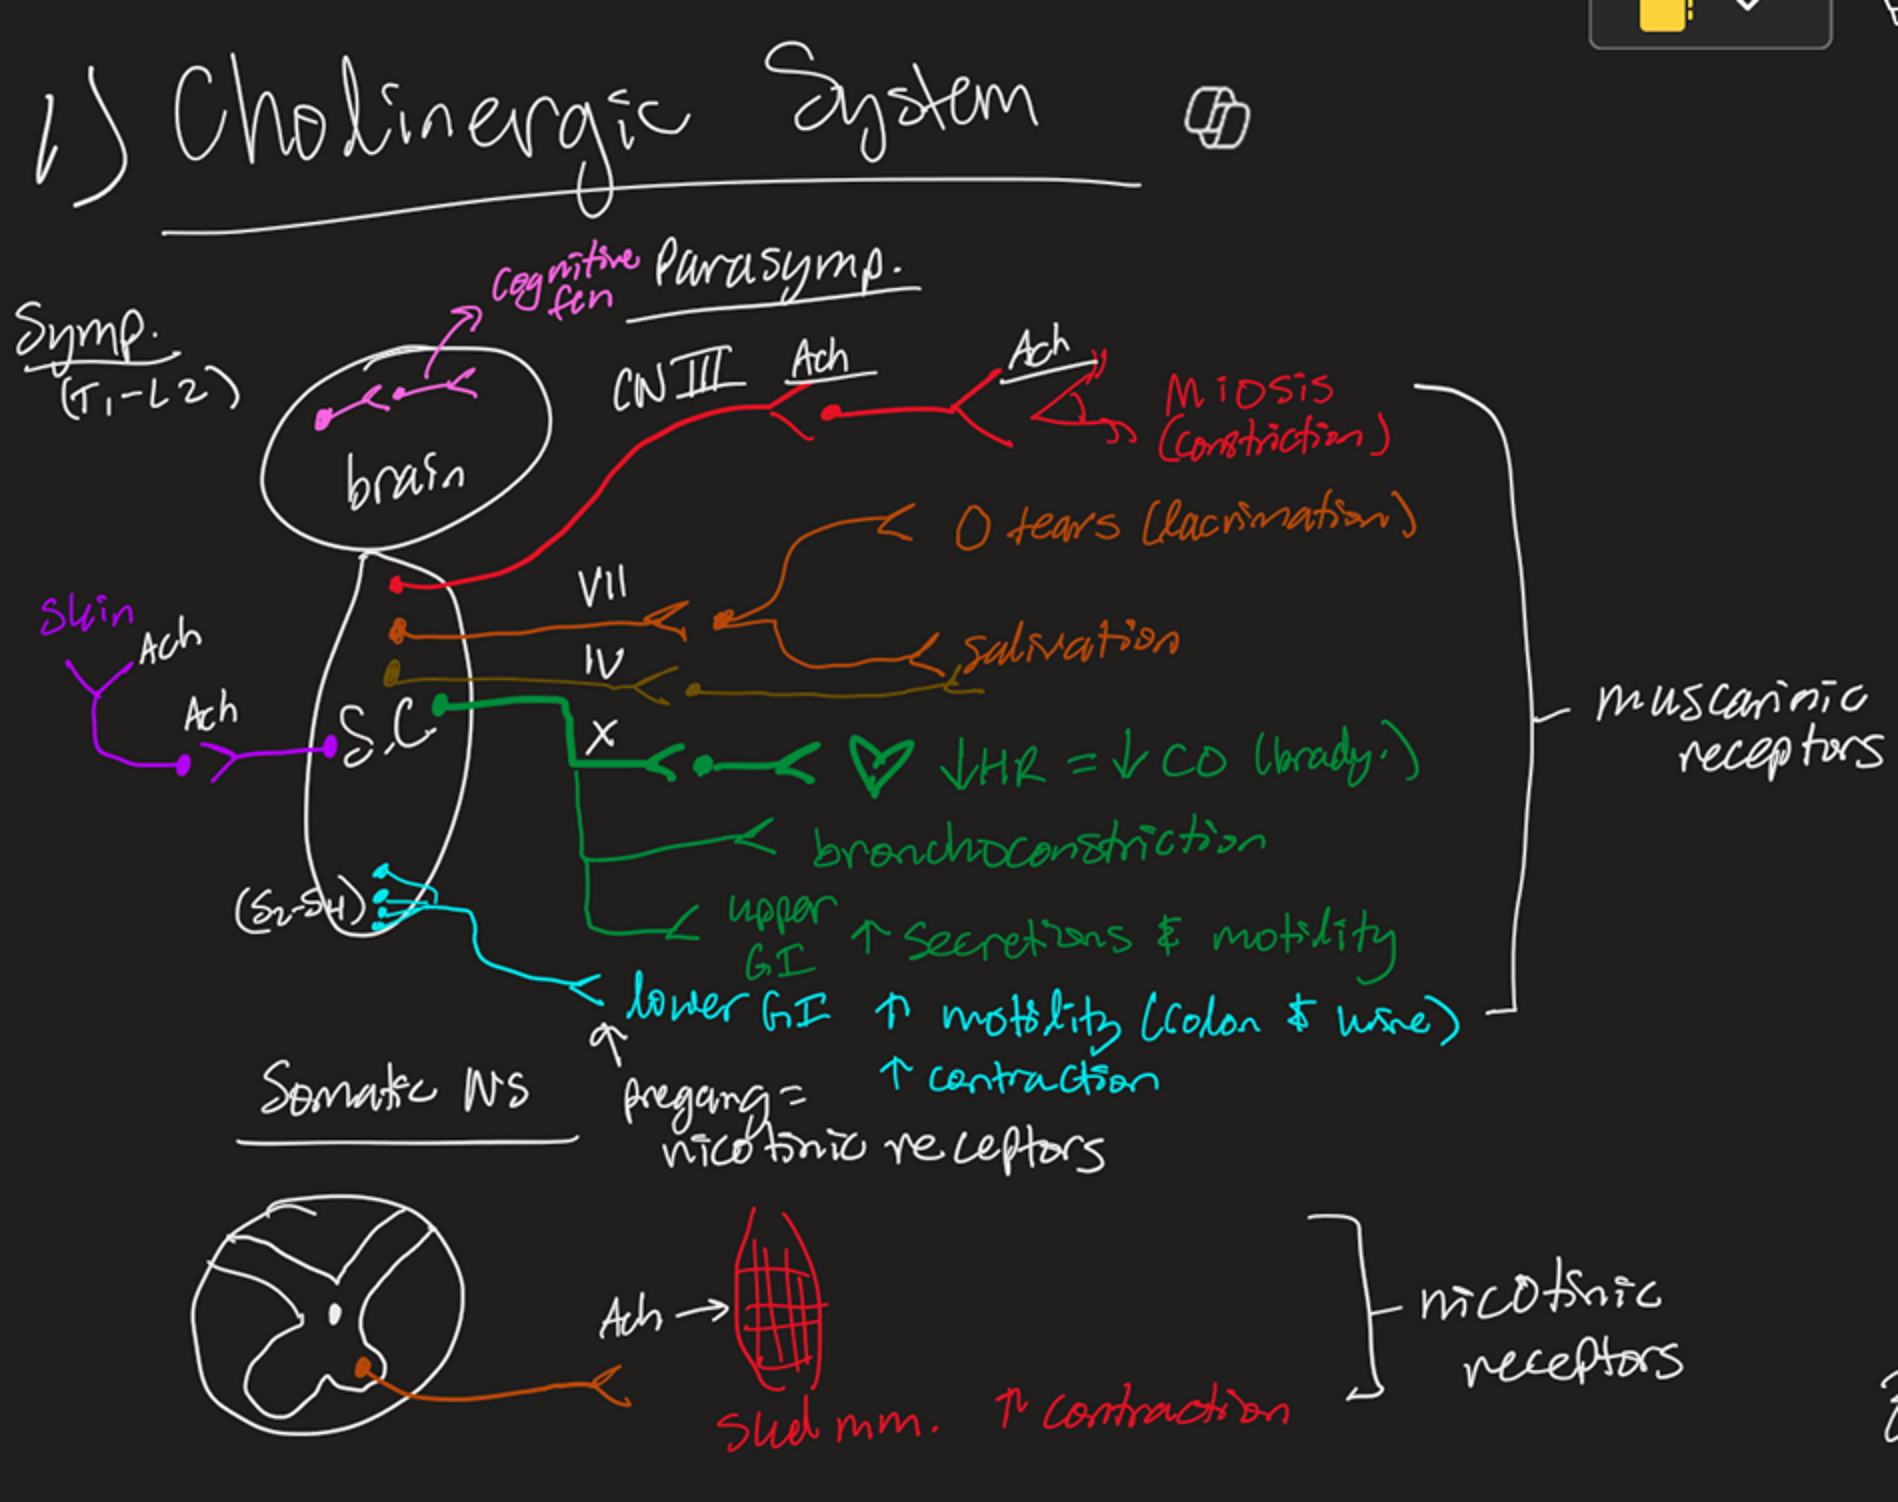 1) Cholinergic System
Cognitive
fcn
Parasymp.
Symp.
(T1-L2)
brain
CN III
Ach
Ach
Miosis
(constriction)
O tears (lacrimation)
VII
salivation
IV
Skin
Ach
Ach
S.C
X
↓HR = ↓ CO (brady.)
bronchoconstriction
(S2-S4)
upper
GI
↑ secretions & motility
lower GI ↑ motility (colon & urine)
↑ contraction
pregang =
nicotinic receptors
muscarinic
receptors
Somatic NS
Ach →
Skel mm. ↑ contraction
nicotinic
receptors